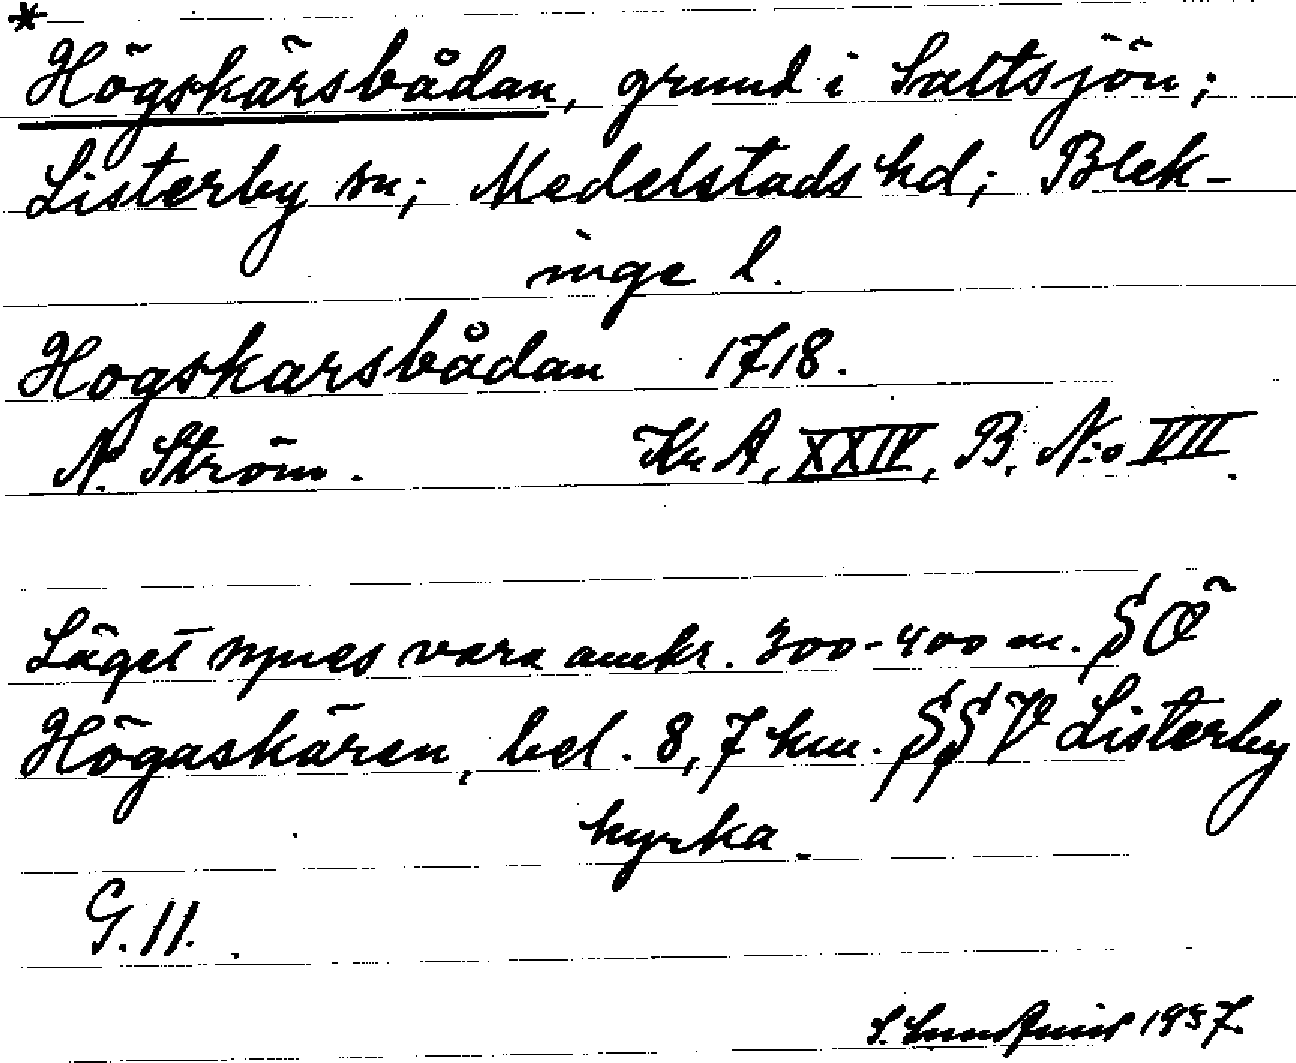 *
Högskärsbådan, grund i Saltsjön;
Listerby sn; Medelstads hd; Blek-
inge l.
Hogskarsbådan 1718.
N. Ström. Kr A, XXIV, B. N:o VII.
Läget synes vara omkr. 300-400 m. SÖ
Högaskären, bel. 8,7 km. SSV Listerby
kyrka.
G. 11.
S. Lundquist 1937.